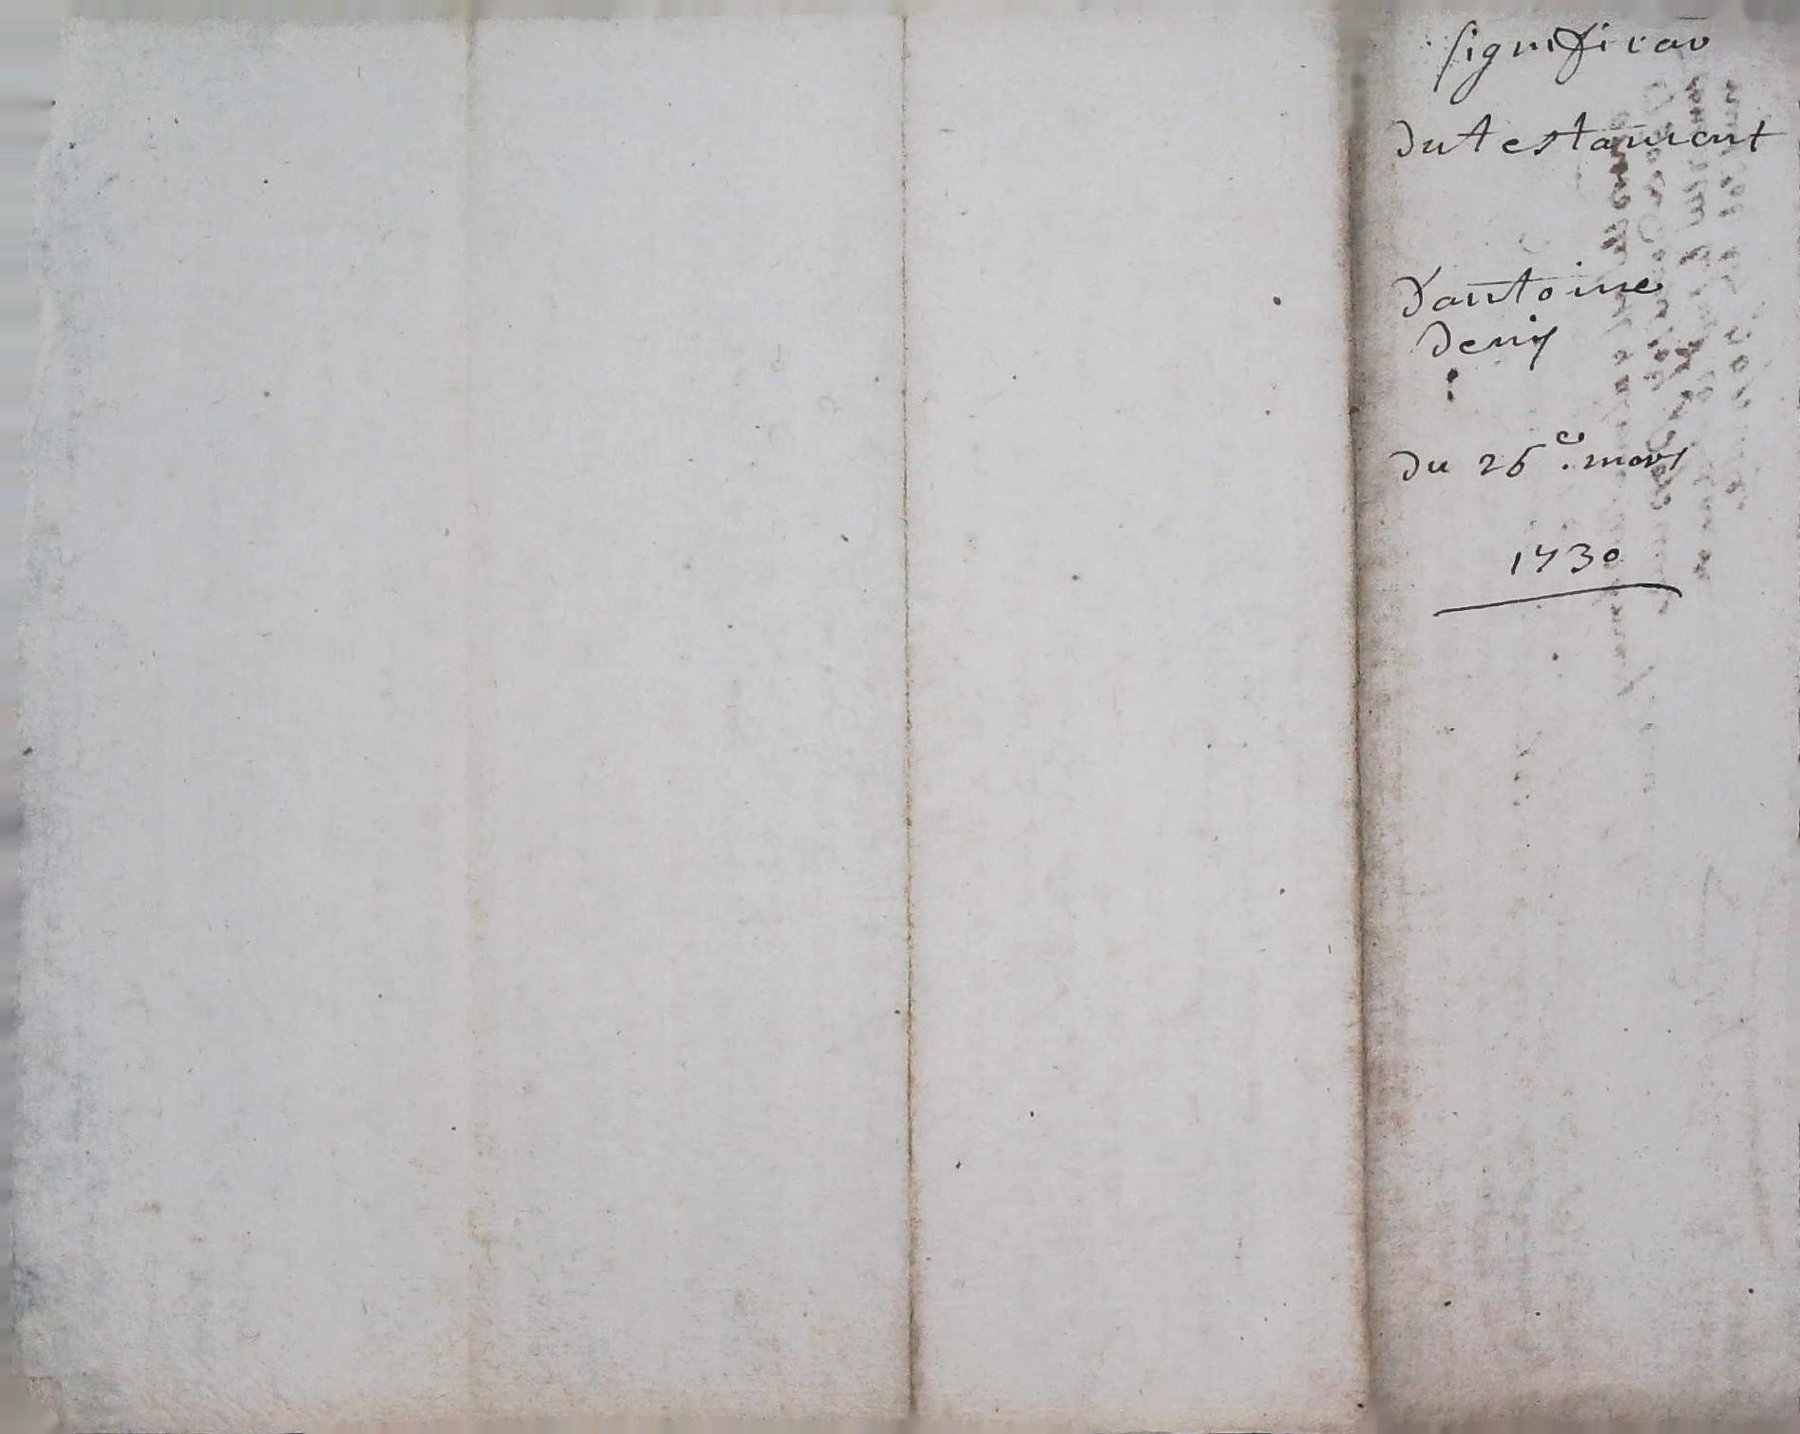 significãõ
du testament
d'antoine
denis
du 26e. mars
1730